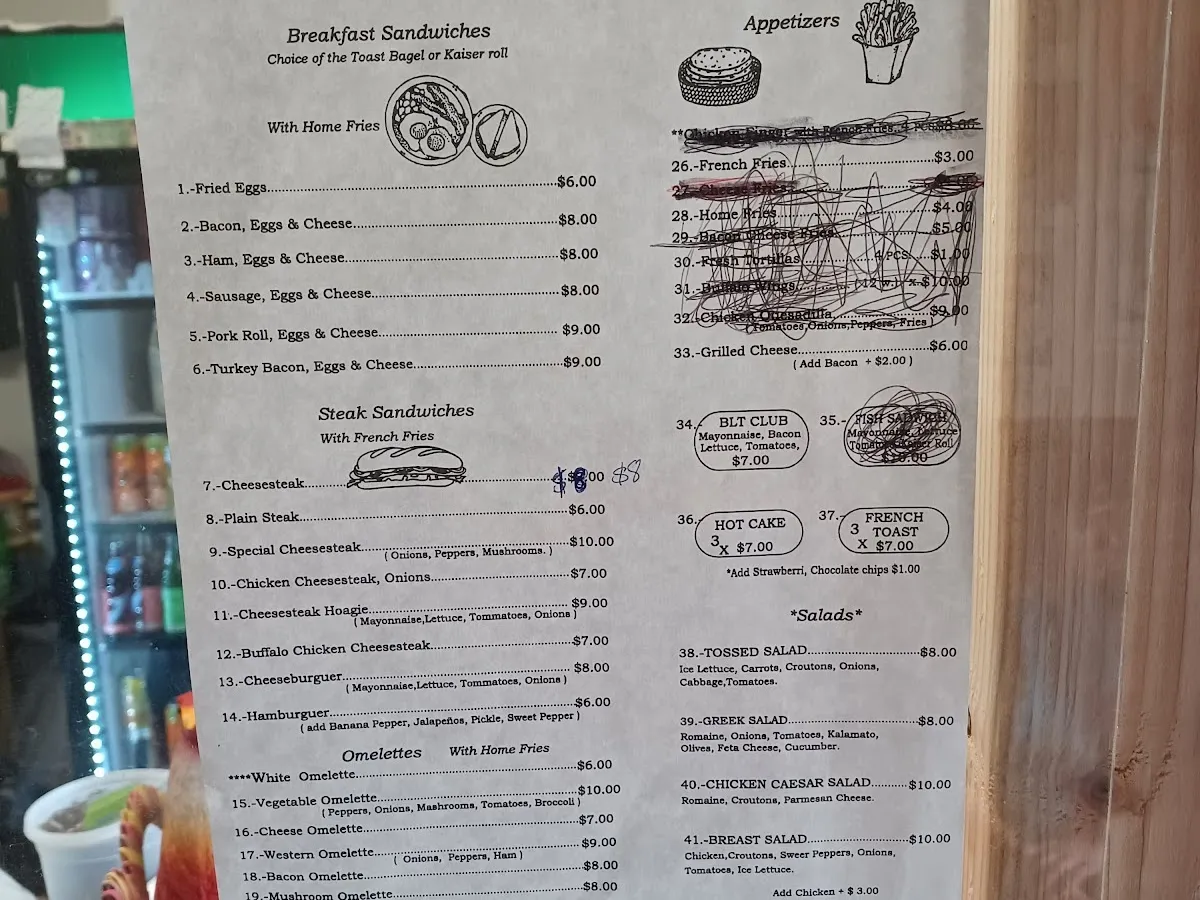 Breakfast Sandwiches
Choice of the Toast Bagel or Kaiser roll
With Home Fries
1.-Fried Eggs...$6.00
2.-Bacon, Eggs & Cheese...$8.00
3.-Ham, Eggs & Cheese...$8.00
4.-Sausage, Eggs & Cheese...$8.00
5.-Pork Roll, Eggs & Cheese...$9.00
6.-Turkey Bacon, Eggs & Cheese...$9.00
Steak Sandwiches
With French Fries
7.-Cheesesteak...$8.00 $8
8.-Plain Steak...$6.00
9.-Special Cheesesteak...$10.00
( Onions, Peppers, Mushrooms. )
10.-Chicken Cheesesteak, Onions...$7.00
11.-Cheesesteak Hoagie...$9.00
( Mayonnaise,Lettuce, Tommatoes, Onions )
12.-Buffalo Chicken Cheesesteak...$7.00
13.-Cheeseburguer...$8.00
( Mayonnaise,Lettuce, Tommatoes, Onions )
14.-Hamburguer...$6.00
( add Banana Pepper, Jalapeños, Pickle, Sweet Pepper )
Omelettes With Home Fries
****White Omelette...$6.00
15.-Vegetable Omelette...$10.00
( Peppers, Onions, Mashrooms, Tomatoes, Broccoli )
16.-Cheese Omelette...$7.00
17.-Western Omelette...$9.00
( Onions, Peppers, Ham )
18.-Bacon Omelette...$8.00
19.-Mushroom Omelette...$8.00
Appetizers
**Chicken Finger with French Fries, 4 PCS
26.-French Fries...$3.00
27.-Cheese Fries
28.-Home Fries...$4.00
29.-Bacon Cheese Fries...$5.00
30.-Fresh Tortillas...4 PCS...$1.00
31.-Buffalo Wings...( 12 w.) x $10.00
32.-Chicken Quesadilla...$9.00
(Tomatoes,Onions,Peppers, Fries )
33.-Grilled Cheese...$6.00
( Add Bacon + $2.00 )
34.- BLT CLUB
Mayonnaise, Bacon
Lettuce, Tomatoes,
$7.00
35.- FISH SADWICH
Mayonnaise, Lettuce
Tomatoes Kaiser Roll
$10.00
36.- HOT CAKE
3 x $7.00
37.- FRENCH
3 TOAST
X $7.00
*Add Strawberri, Chocolate chips $1.00
*Salads*
38.-TOSSED SALAD...$8.00
Ice Lettuce, Carrots, Croutons, Onions,
Cabbage,Tomatoes.
39.-GREEK SALAD...$8.00
Romaine, Onions, Tomatoes, Kalamato,
Olives, Feta Cheese, Cucumber.
40.-CHICKEN CAESAR SALAD...$10.00
Romaine, Croutons, Parmesan Cheese.
41.-BREAST SALAD...$10.00
Chicken,Croutons, Sweer Peppers, Onions,
Tomatoes, Ice Lettuce.
Add Chicken + $ 3.00